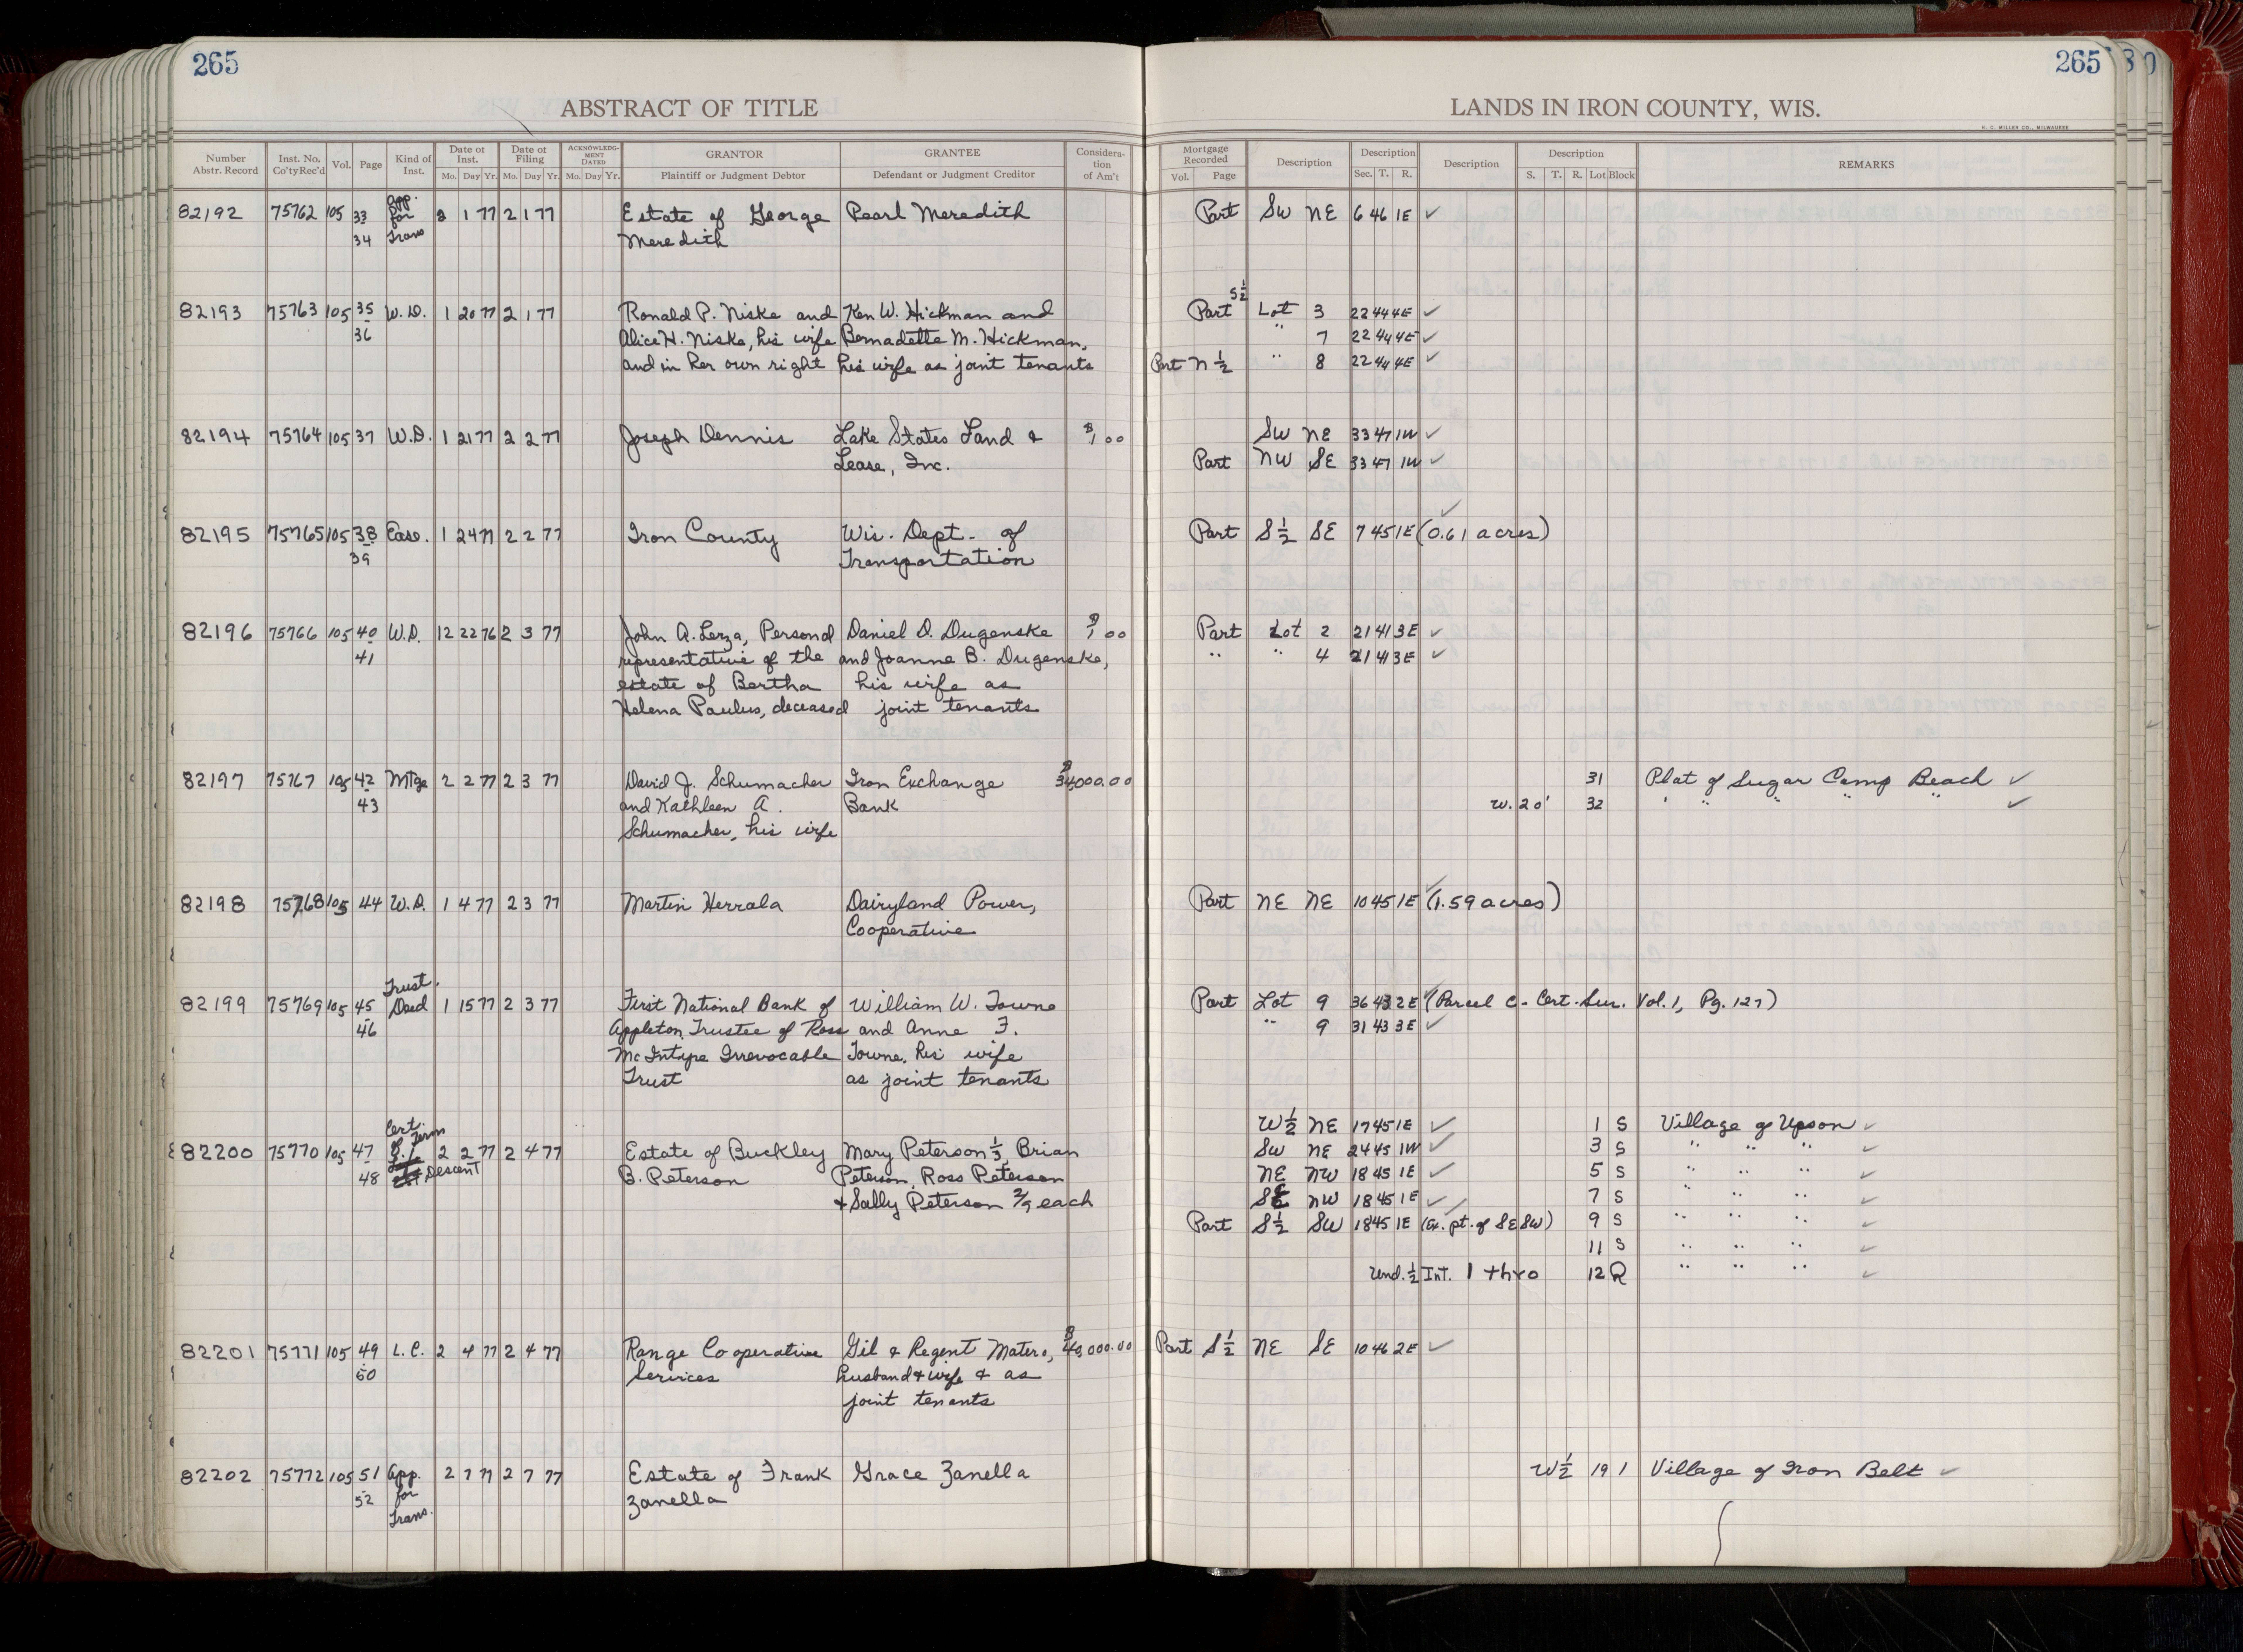 265
ABSTRACT OF TITLE
Number Abstr. Record Inst. No. Co'ty Rec'd Vol. Page Kind of Inst. Date of Inst. Mo. Day Yr. Date of Filing Mo. Day Yr. ACKNOWLEDGMENT DATED Mo. Day Yr. GRANTOR Plaintiff or Judgment Debtor GRANTEE Defendant or Judgment Creditor Consideration of Am't
82192 75762 105 33 App. for 2 1 77 2 1 77 Estate of George Pearl Meredith
34 Trans Meredith
82193 75763 105 35 W.D. 1 20 77 2 1 77 Ronald P. Niske and Ken W. Hickman and
36 Alice H. Niske, his wife Bernadette M. Hickman,
and in her own right his wife as joint tenants
82194 75764 105 37 W.D. 1 21 77 2 2 77 Joseph Dennis Lake States Land & $1.00
Lease, Inc.
82195 75765 105 38 Ease. 1 24 77 2 2 77 Iron County Wis. Dept. of
39 Transportation
82196 75766 105 40 W.D. 12 22 76 2 3 77 John A. Lerza, Personal Daniel D. Dugenske $1.00
41 representative of the and Joanne B. Dugenske,
estate of Bertha his wife as
Helena Paulus, deceased joint tenants
82197 75767 105 42 Mtge 2 2 77 2 3 77 David J. Schumacher Iron Exchange $34,000.00
43 and Kathleen A. Bank
Schumacher, his wife
82198 75768 105 44 W.D. 1 4 77 2 3 77 Martin Herrala Dairyland Power,
Cooperative
Trust.
82199 75769 105 45 Deed 1 15 77 2 3 77 First National Bank of William W. Towne
46 Appleton, Trustee of Ross and Anne F.
McIntyre Irrevocable Towne, his wife
Trust as joint tenants
Cert.
of Term
82200 75770 105 47 2 2 77 2 4 77 Estate of Buckley Mary Peterson 1/3, Brian
48 Descent B. Peterson Peterson, Ross Peterson
& Sally Peterson 2/9 each
82201 75771 105 49 L.C. 2 4 77 2 4 77 Range Cooperative Gil & Regent Matero, $40,000.00
50 Services husband & wife & as
joint tenants
82202 75772 105 51 App. 2 7 77 2 7 77 Estate of Frank Grace Zanella
52 for Zanella
Trans.
265
LANDS IN IRON COUNTY, WIS.
H. C. MILLER CO., MILWAUKEE
Mortgage Recorded Vol. Page Description Description Sec. T. R. Description Description S. T. R. Lot Block REMARKS
Part SW NE 6 46 1E ✓
Part S 1/2 Lot 3 22 44 4E ✓
" 7 22 44 4E ✓
Part N 1/2 " 8 22 44 4E ✓
SW NE 33 47 1W ✓
Part NW SE 33 47 1W ✓
Part S 1/2 SE 7 45 1E (0.61 acres) ✓
Part Lot 2 21 41 3E ✓
" " 4 21 41 3E ✓
31 Plat of Sugar Camp Beach ✓
W. 20' 32 " " " " " ✓
Part NE NE 10 45 1E (1.59 acres) ✓
Part Lot 9 36 43 2E (Parcel C - Cert. Sur. Vol. 1, Pg. 127) ✓
" 9 31 43 3E ✓
W 1/2 NE 17 45 1E ✓ 1 S Village of Upson ✓
SW NE 24 45 1W ✓ 3 S " " " ✓
NE NW 18 45 1E ✓ 5 S " " " ✓
SE NW 18 45 1E ✓ 7 S " " " ✓
Part S 1/2 SW 18 45 1E (Ex. pt. of SE SW) ✓ 9 S " " " ✓
11 S " " " ✓
Und. 1/2 Int. 1 thro 12 R " " " ✓
Part S 1/2 NE SE 10 46 2E ✓
W 1/2 19 1 Village of Iron Belt ✓